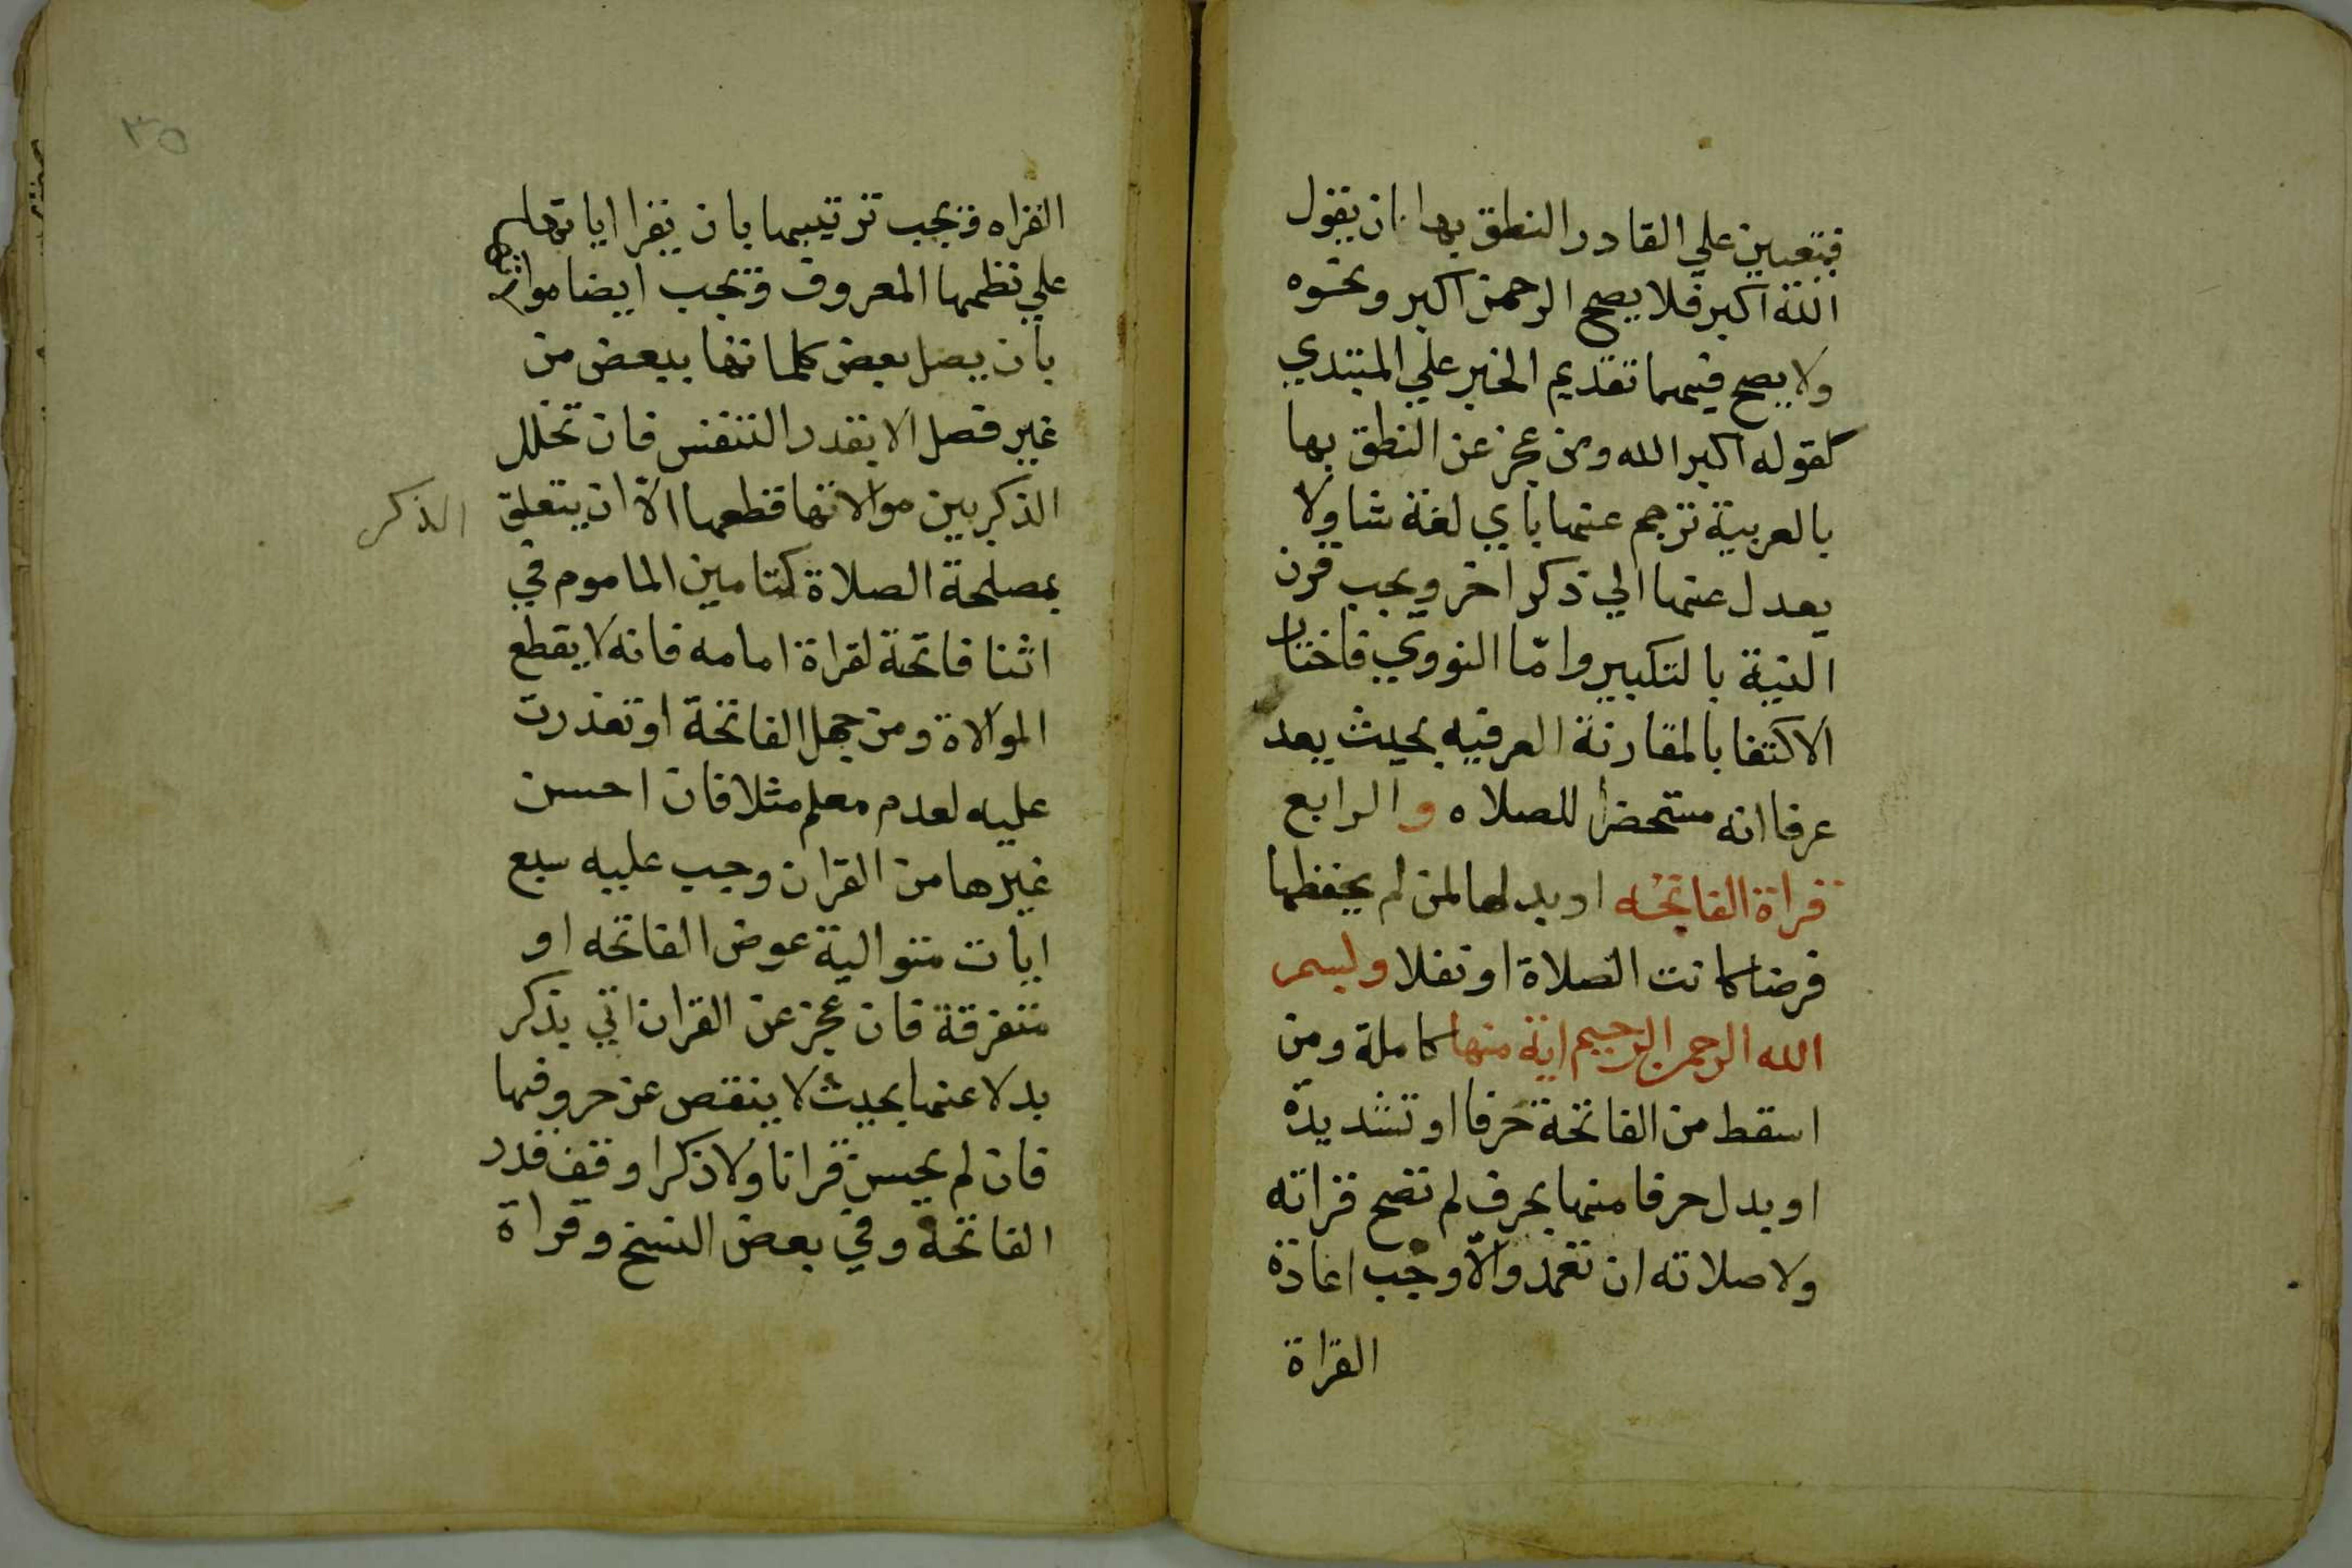 فيتعين علي القادر النطق بها ان يقول
الله اكبر فلا يصح الرحمن اكبر ونحوه
ولا يصح فيهما تقديم الخبر علي المبتدي
كقوله اكبر الله ومن عجز عن النطق بها
بالعربية ترجم عنها باي لغة شا ولا
يعدل عنها الي ذكر اخر ويجب قرن
النية بالتكبير وامّا النووي فاختار
الاكتفا بالمقارنة العرفيه بحيث يعد
عرفا انه مستحضرا للصلاه والرابع
قراة الفاتحه او بدلها لمن لم يحفظها
فرضا كانت الصلاة او نفلا وبسم
الله الرحمن الرحيم اية منها كاملة ومن
اسقط من الفاتحة حرفا او تشديدة
او بدل حرفا منها بحرف لم تصح قراته
ولا صلاته ان تعمد والّا وجب اعادة
القراة
٣٥
القراه ويجب ترتيبها بان يقرا اياتها
علي نظمها المعروف ويجب ايضا موالاتها
بان يصل بعض كلماتها ببعض من
غير فصل الا بقدر التنفس فان تخلل
الذكر بين موالاتها قطعها الّا ان يتعلق
الذكر
بمصلحة الصلاة كتامين الماموم في
اثنا فاتحة لقراة امامه فانه لا يقطع
الموالاة ومن جهل الفاتحة او تعذرت
عليه لعدم معلم مثلا فان احسن
غيرها من القران وجب عليه سبع
ايات متوالية عوض الفاتحه او
متفرقة فان عجز عن القران اتي بذكر
بدلا عنها بحيث لا ينقص عن حروفها
فان لم يحسن قرانا ولا ذكرا وقف قدر
الفاتحة وفي بعض النسخ وقراة